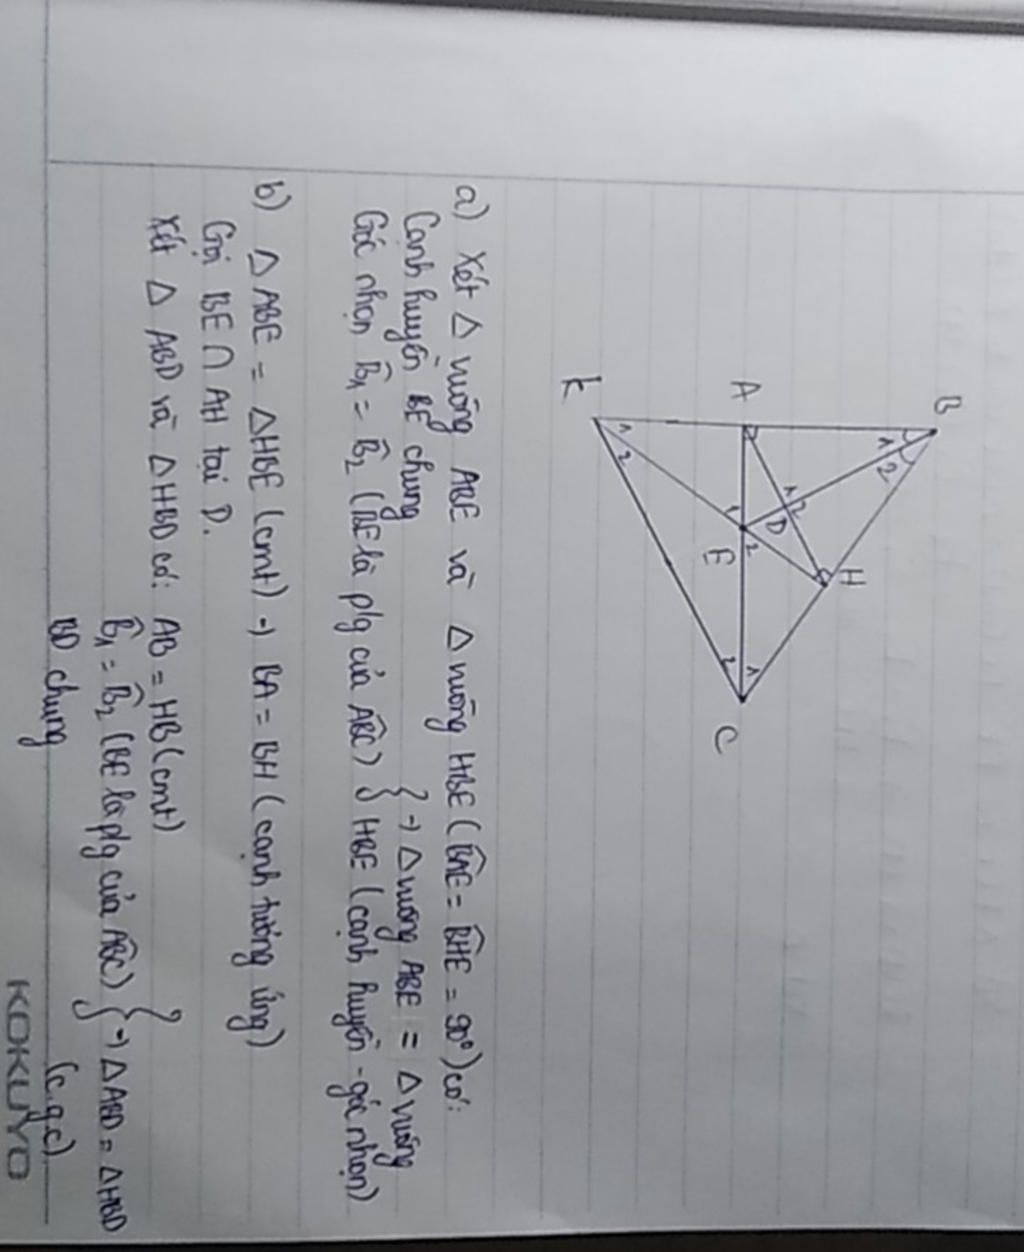 B
1 2
H
1 2
D
A
1 2
E
1
C
2
K
1 2
a) Xét △ vuông ABE và △ vuông HBE (B̂AE = B̂HE = 90°) có:
Cạnh huyền BE chung
Góc nhọn B̂1 = B̂2 (BE là p/g của ÂBC) } → △ vuông ABE = △ vuông
HBE (cạnh huyền - góc nhọn)
b) △ ABE = △ HBE (cmt) → BA = BH (cạnh tương ứng)
Gọi BE ∩ AH tại D.
Xét △ ABD và △ HBD có: AB = HB (cmt)
B̂1 = B̂2 (BE là p/g của ÂBC) } → △ ABD = △ HBD
BD chung
(c.g.c)
KOKUYO